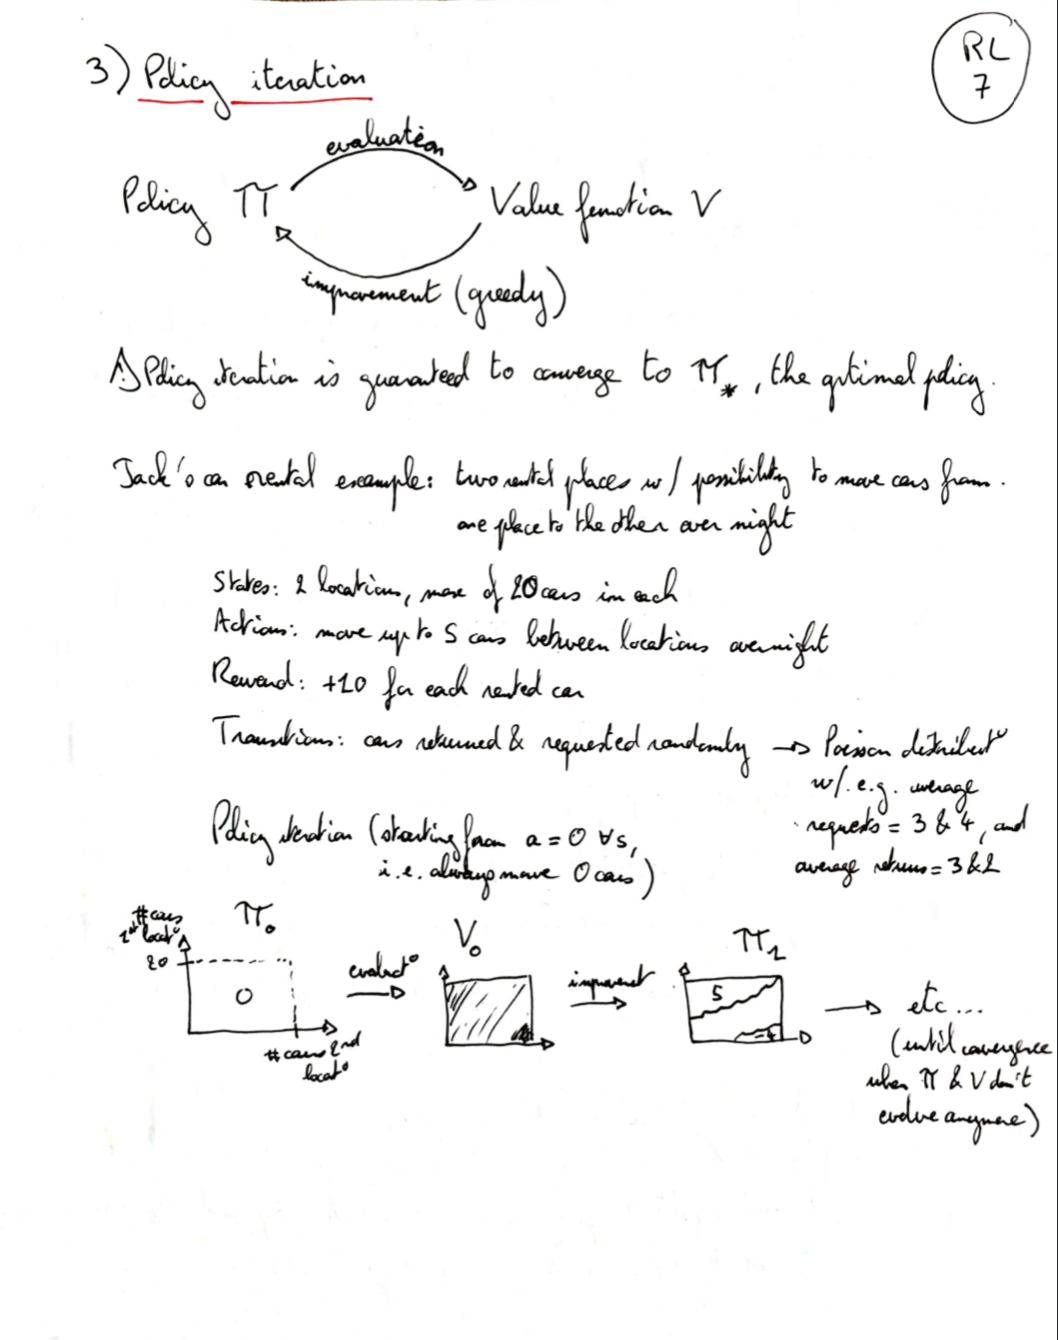 RL
7
3) Policy iteration
evaluation
Policy π Value function V
improvement (greedy)
⚠ Policy iteration is guaranteed to converge to π*, the optimal policy.
Jack's car rental example: two rental places w/ possibility to move cars from
one place to the other over night
States: 2 locations, max of 20 cars in each
Actions: move up to 5 cars between locations overnight
Reward: +10 for each rented car
Transitions: cars returned & requested randomly → Poisson distribut°
w/. e.g. average
requests = 3 & 4, and
average returns = 3 & 2
Policy iteration (starting from a = 0 ∀s,
i.e. always move 0 cars)
# cars
1st locat°
20
π₀
0
# cars 2nd
locat°
evaluat°
V₀
improvement
π₁
5
-4
etc...
(until convergence
when π & V don't
evolve anymore)